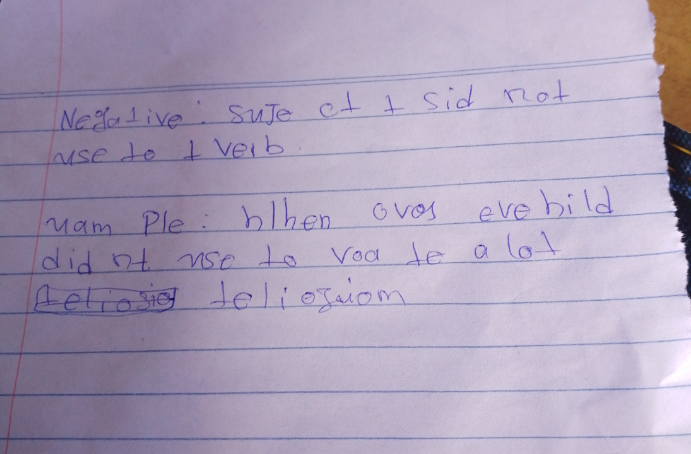 Negative: suJe ct + sid not
use to + verb.
uam Ple: hlhen oves eve hild
did nt use to voa te a lot
teliosie teliozuiom